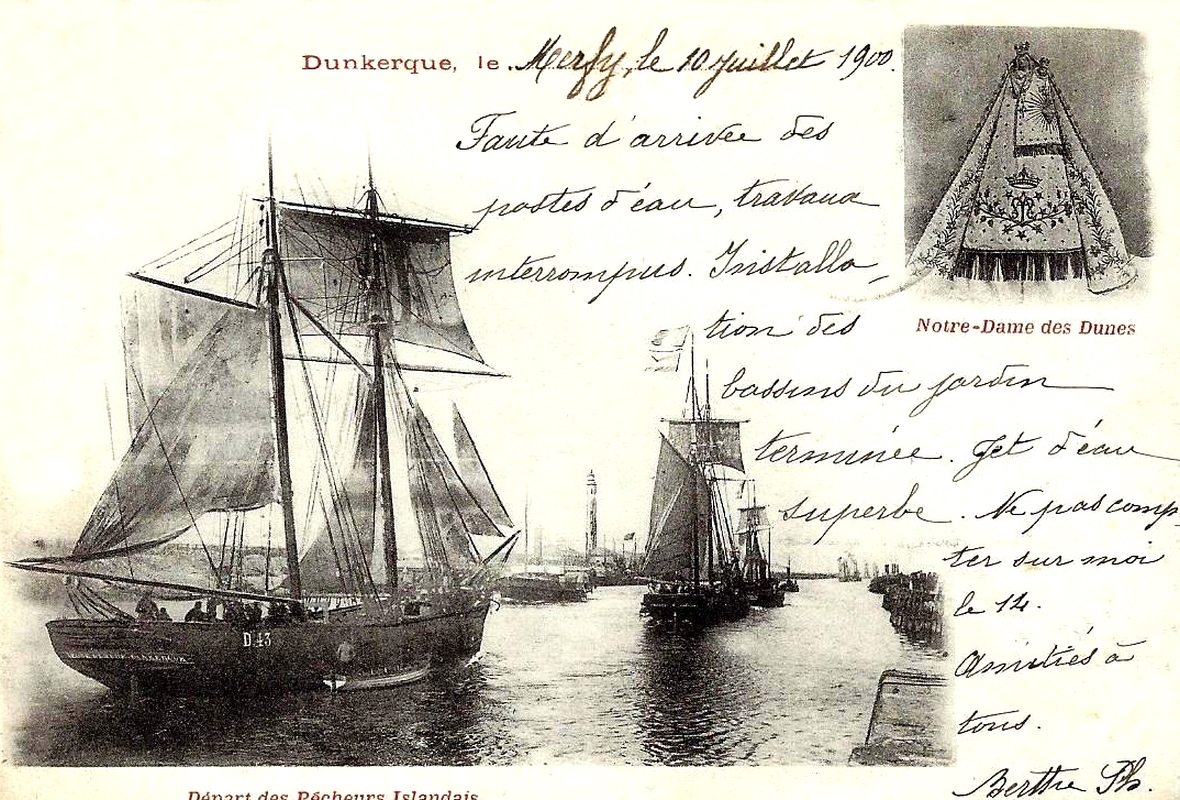 Dunkerque, le Merfy, le 10 Juillet 1900.
Faute d'arrivée des
postes d'eau, travaux
interrompus. Installa-
tion des
bassins du jardin
terminée. Jet d'eau
superbe. Ne pas comp-
ter sur moi
le 14.
Amitiés à
tous.
Berthe Ph.
Notre-Dame des Dunes
D.43
Départ des Pêcheurs Islandais